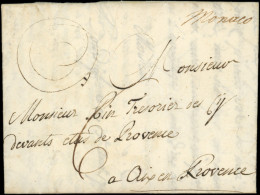 Monaco
A Monsieur
Monsieur Tresorier des Cy
devants etats de Provence
a Aix en Provence